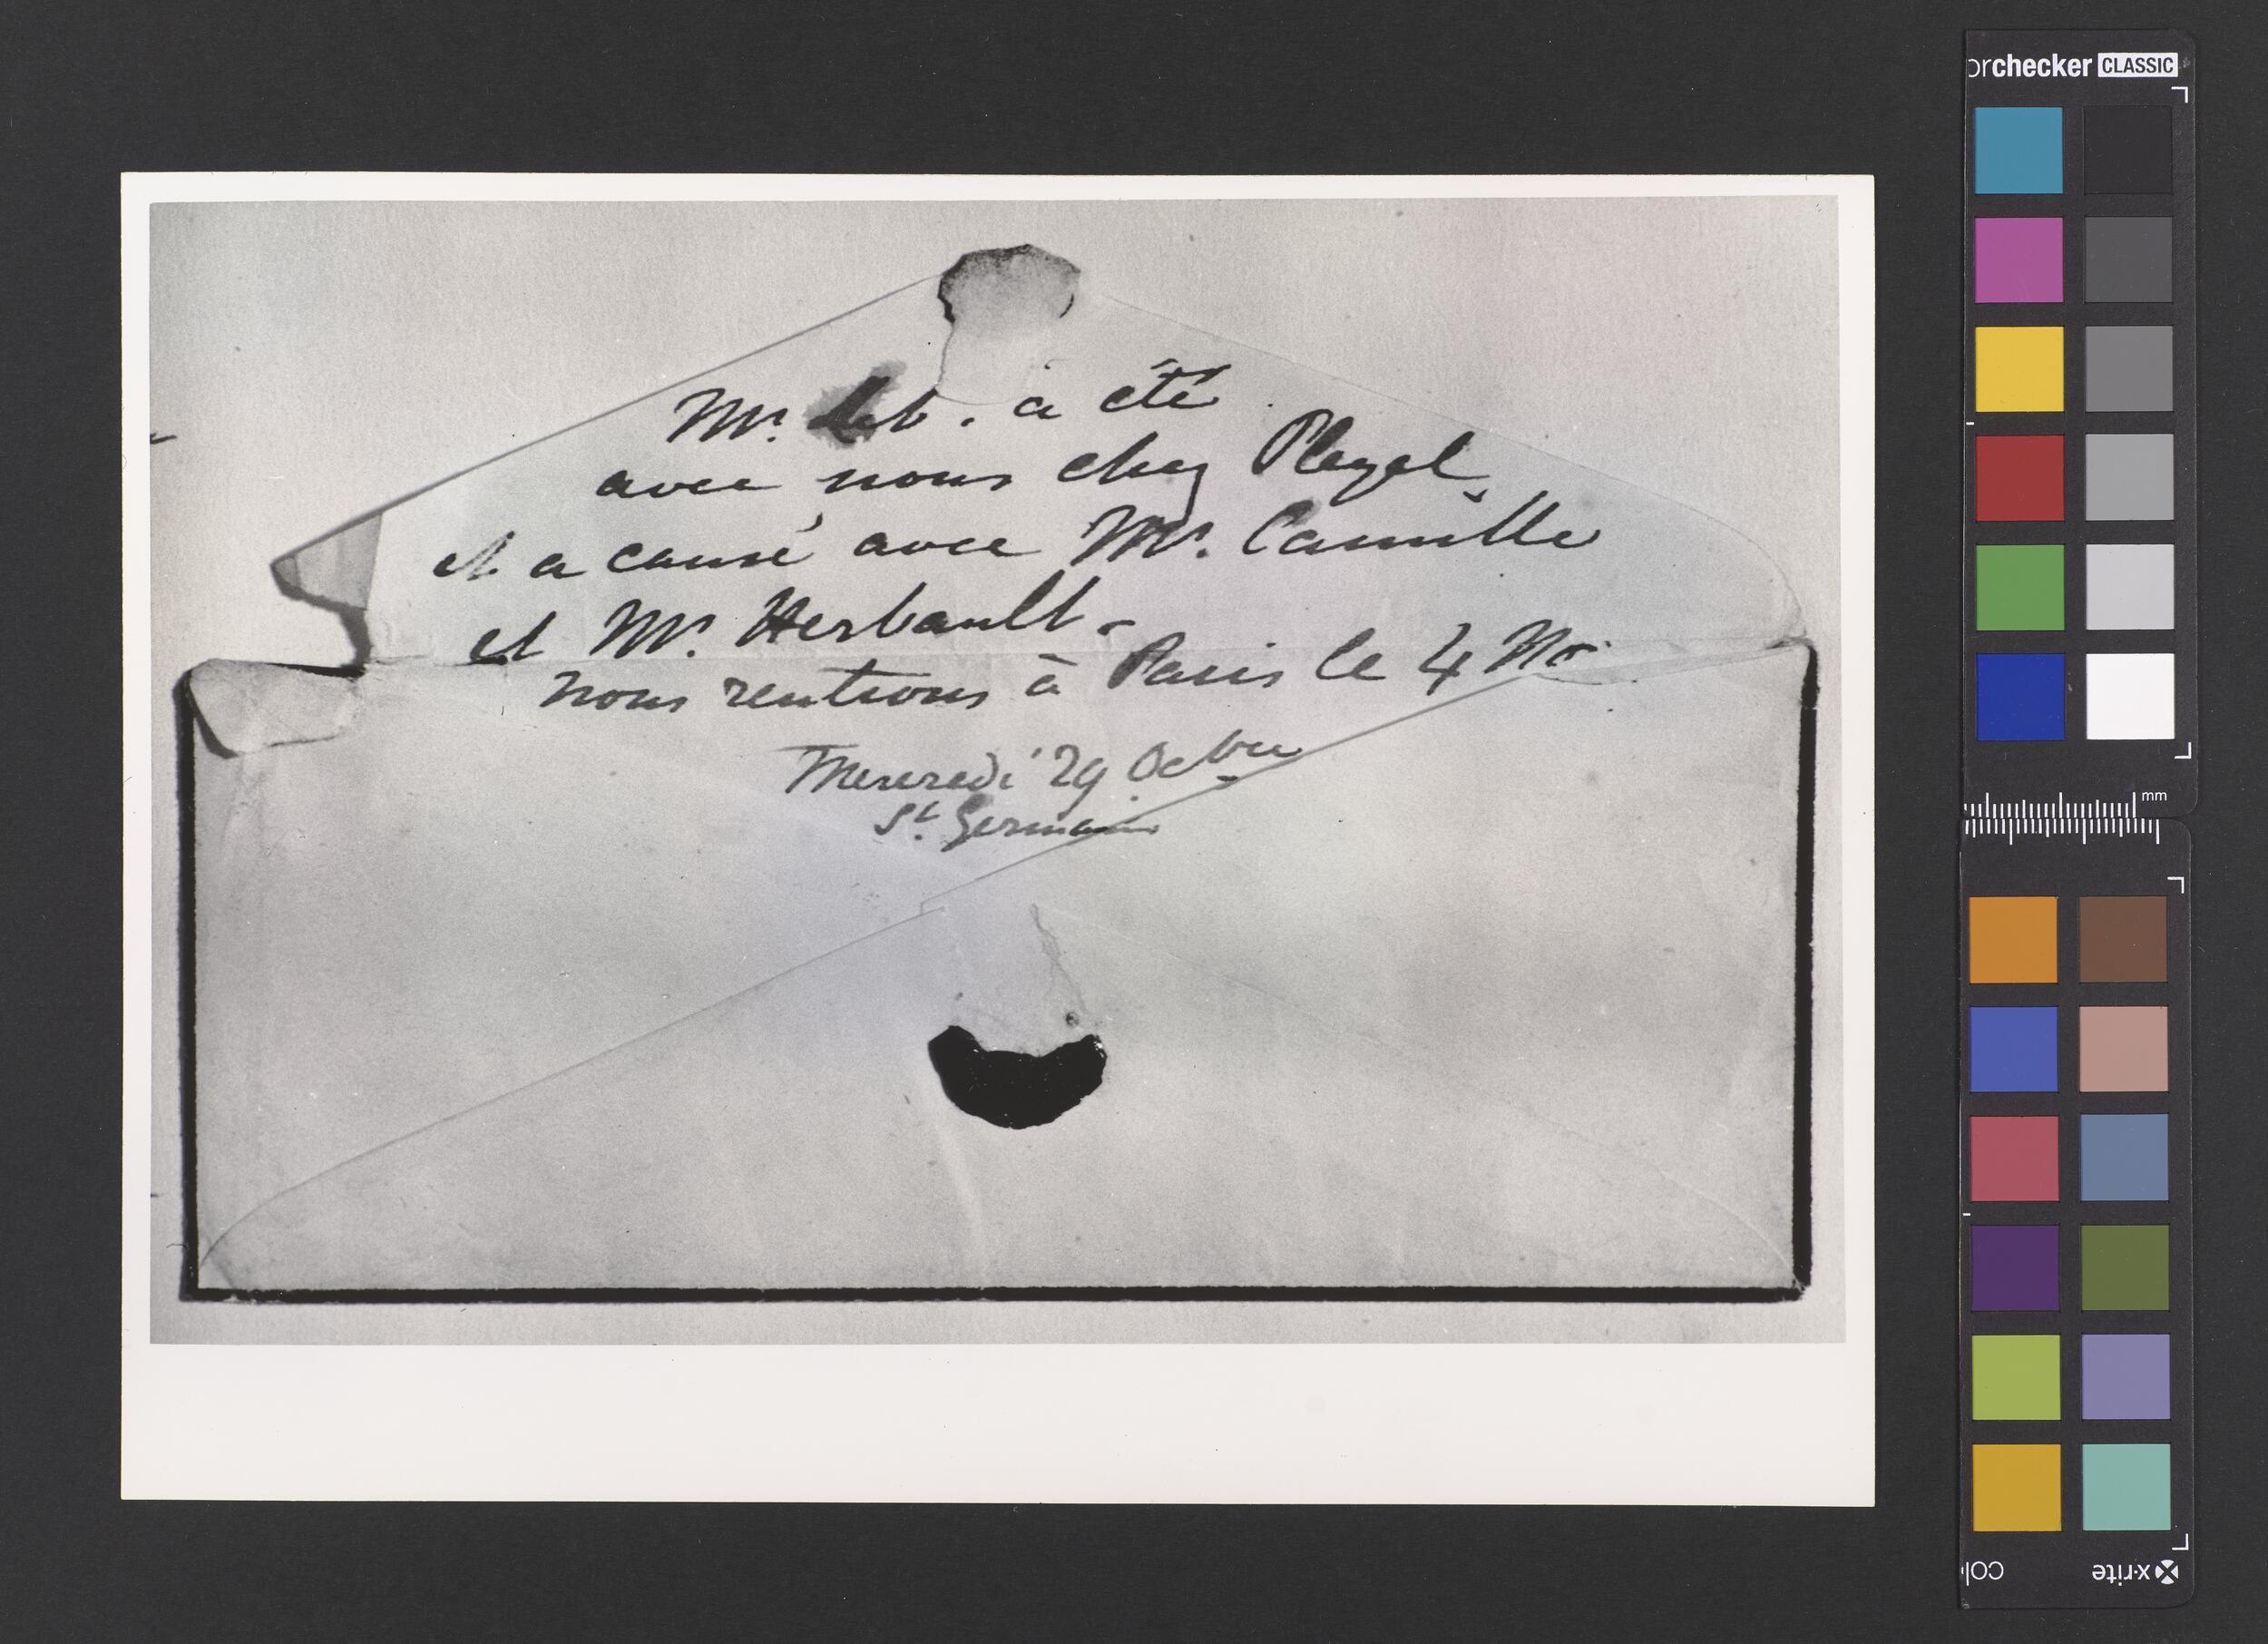 Mr. Leb. a été
avec nous chez Pleyel,
et a causé avec Mr. Camille
et Mr. Herbault -
nous rentrons à Paris le 4 No.
Mercredi 29 Octbre
St. Germain
orchecker CLASSIC
mm
x-rite
col